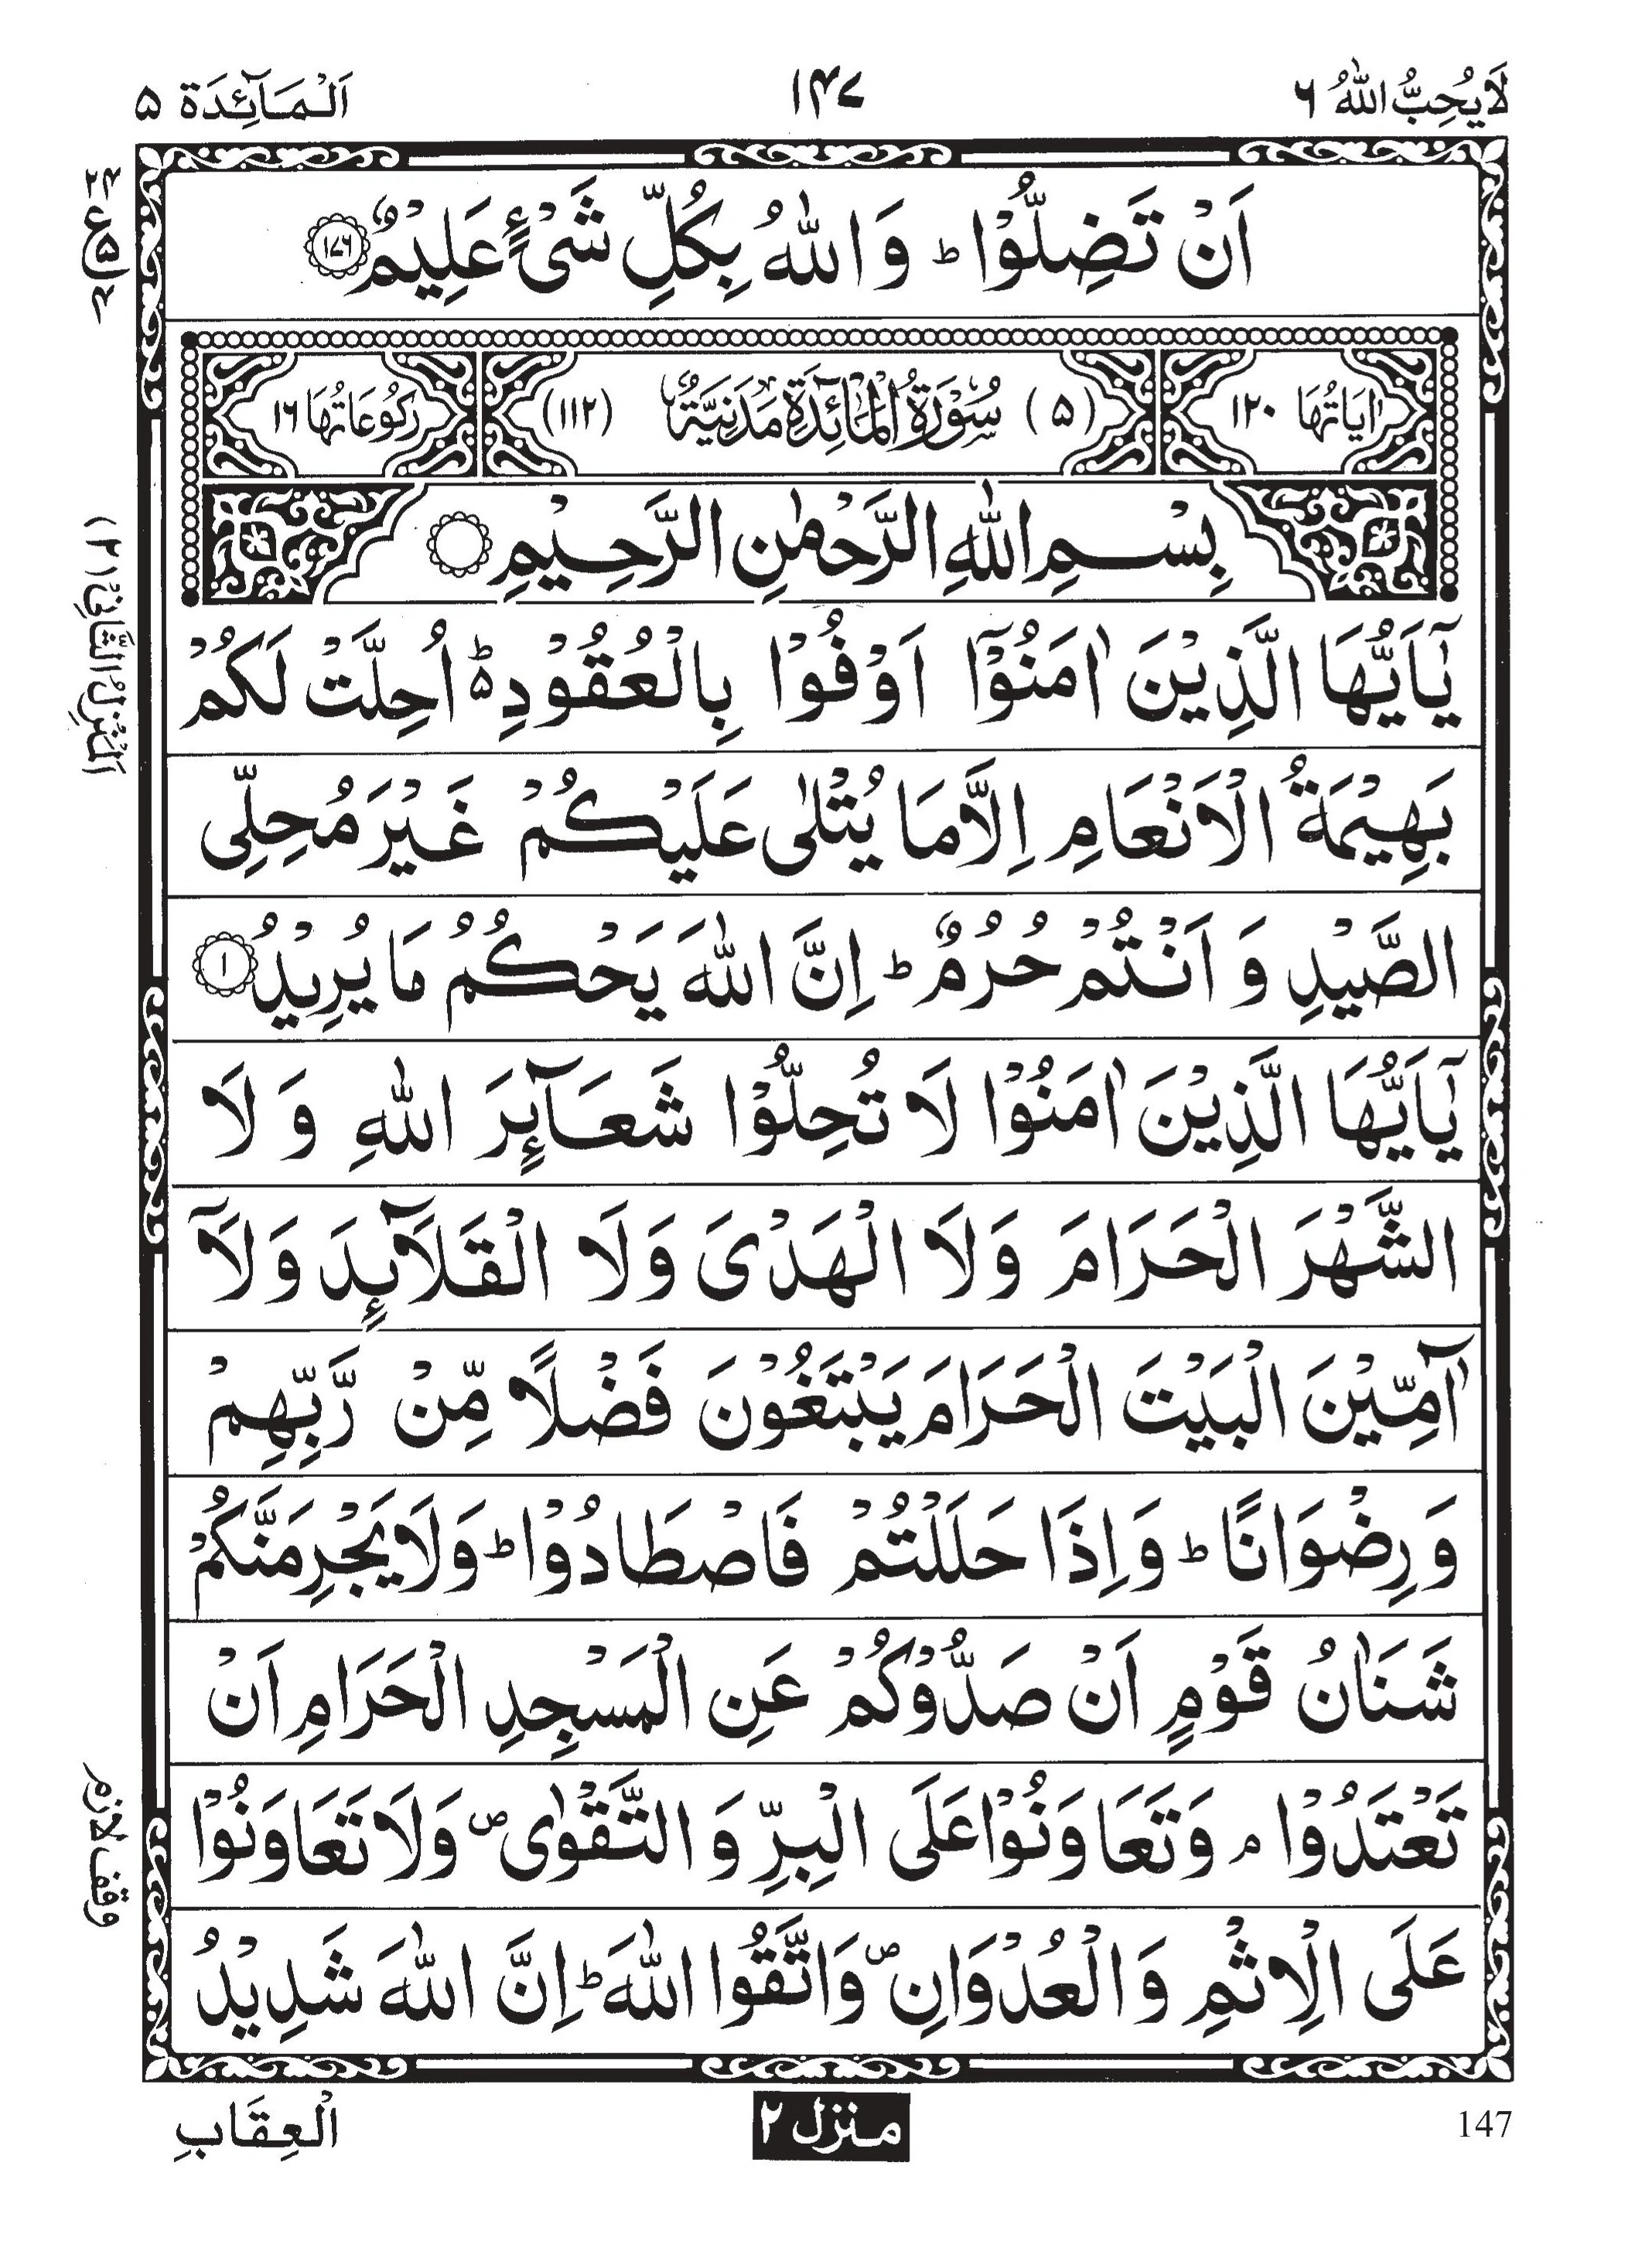 لَا يُحِبُّ اللّٰهُ ٦
١٤٧
اَلْمَآئِدَة ٥
اَنْ تَضِلُّوْا ؕ وَ اللّٰهُ بِكُلِّ شَیْءٍ عَلِيْمٌ ۟ ١٧٦
اٰيَاتُهَا ١٢٠
(٥) سُوْرَةُ الْمَآئِدَةِ مَدَنِيَّةٌ (١١٢)
رُكُوْعَاتُهَا ١٦
بِسْمِ اللّٰهِ الرَّحْمٰنِ الرَّحِيْمِ
يٰۤاَيُّهَا الَّذِيْنَ اٰمَنُوْۤا اَوْفُوْا بِالْعُقُوْدِ ؕ۬ اُحِلَّتْ لَكُمْ
بَهِيْمَةُ الْاَنْعَامِ اِلَّا مَا يُتْلٰى عَلَيْكُمْ غَيْرَ مُحِلِّی
الصَّيْدِ وَ اَنْتُمْ حُرُمٌ ؕ اِنَّ اللّٰهَ يَحْكُمُ مَا يُرِيْدُ ١
يٰۤاَيُّهَا الَّذِيْنَ اٰمَنُوْا لَا تُحِلُّوْا شَعَآئِرَ اللّٰهِ وَ لَا
الشَّهْرَ الْحَرَامَ وَلَا الْهَدْیَ وَلَا الْقَلَآئِدَ وَلَاۤ
آٰمِّيْنَ الْبَيْتَ الْحَرَامَ يَبْتَغُوْنَ فَضْلًا مِّنْ رَّبِّهِمْ
وَ رِضْوَانًا ؕ وَ اِذَا حَلَلْتُمْ فَاصْطَادُوْا ؕ وَلَا يَجْرِمَنَّكُمْ
شَنَاٰنُ قَوْمٍ اَنْ صَدُّوْكُمْ عَنِ الْمَسْجِدِ الْحَرَامِ اَنْ
تَعْتَدُوْا ۘ وَتَعَاوَنُوْا عَلَى الْبِرِّ وَ التَّقْوٰى ۪ وَلَا تَعَاوَنُوْا
عَلَى الْاِثْمِ وَ الْعُدْوَانِ ۪ وَاتَّقُوا اللّٰهَ ؕ اِنَّ اللّٰهَ شَدِيْدُ
الْعِقَابِ
منزل ٢
147
اَلْمَنْزِلُ الثَّانِیْ (٢)
وقف لازم